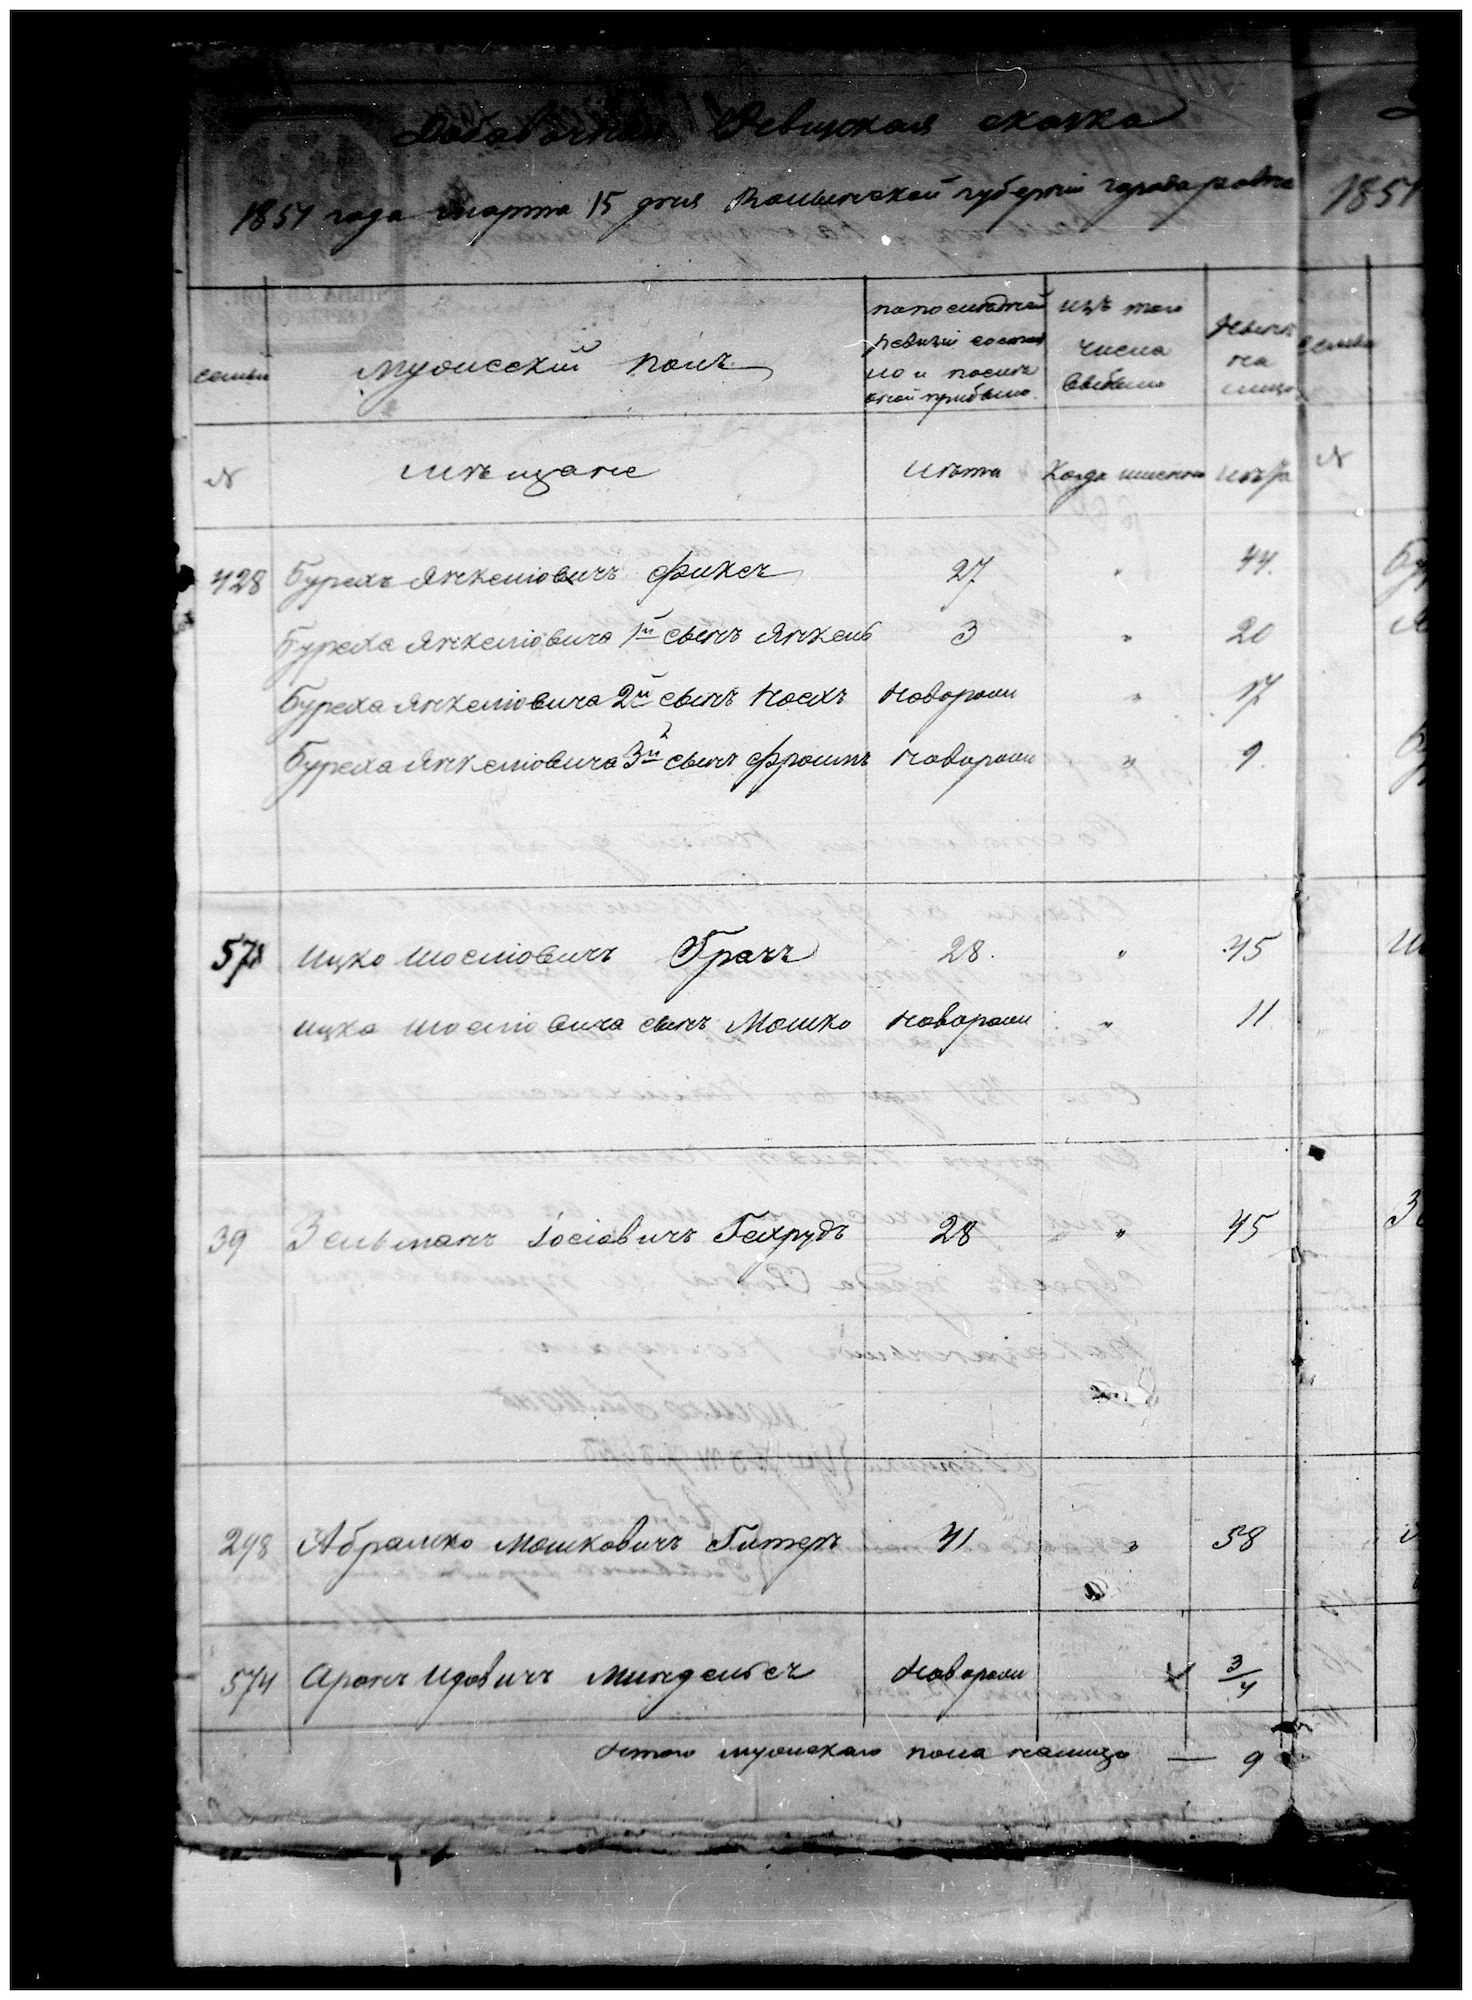 Добавочная Ревизская сказка
1851 года марта 15 дня Волынской губернiи города Ровна
1851
семьи
мужескiй полъ
по последней ревизiи состоя
ло и после
оной прибыло
изъ того числа выбыло
Ныне на лицо
семьи
N
мѣщане
Лѣта
Когда именно
Лѣта
N
428 Бурехъ Янкелiовичъ Фиксъ 27 " 44.
Буреха Янкелiовича 1й сынъ Янкель 3 " 20
Буреха Янкелiовича 2й сынъ Ноехъ Новорожи " 17
Буреха Янкелiовича 3й сынъ Фроимъ Новорожи " 9.
578 Ицко Иослiовичъ Грачъ 28. " 45
Ицка Иослiовича сынъ Мошко Новорожи " 11
39 Зельманъ Iосiовичъ Гехрудъ 28 " 45
298 Абрамко Мошковичъ Гитеръ 41 " 58
574 Аронъ Идовичъ Миндельсъ Новорожи 3/4
Итого мужескаго пола налицо — 9